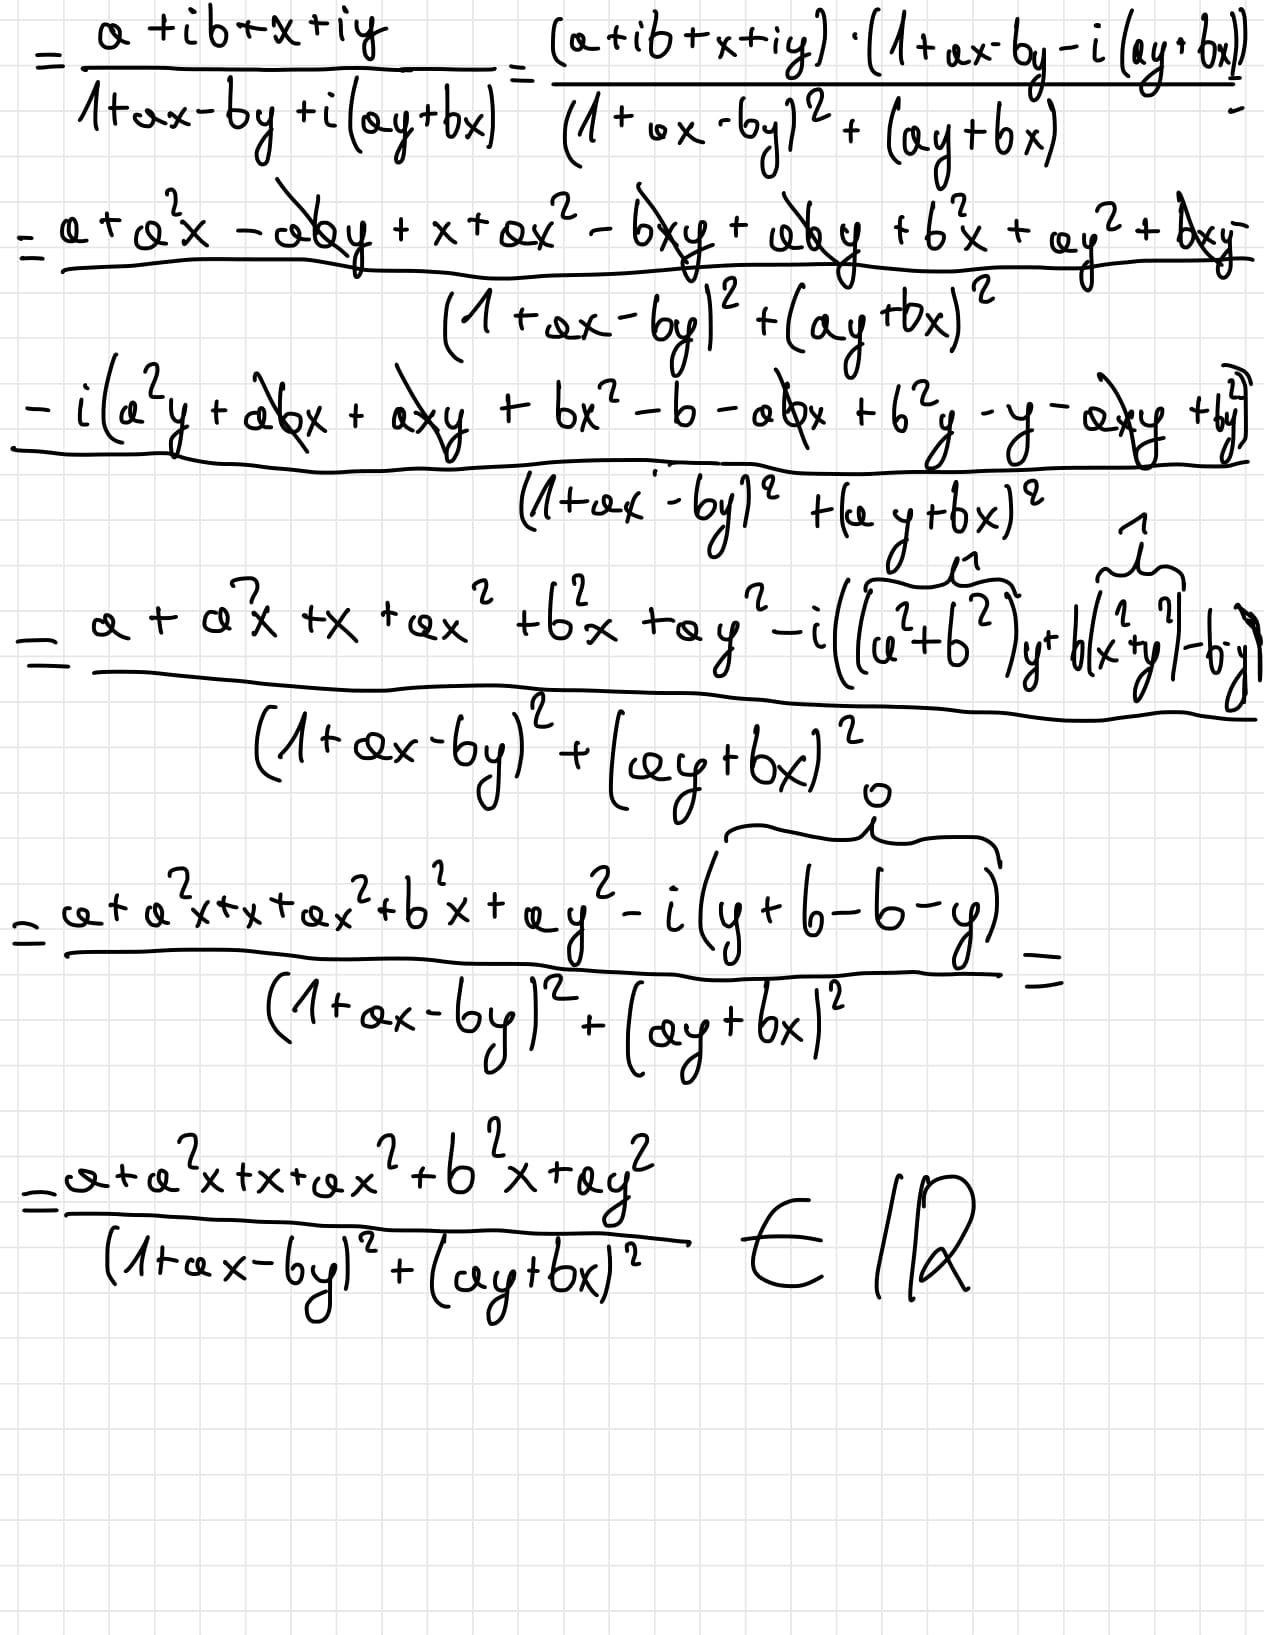 = (a+ib+x+iy)/(1+ax-by+i(ay+bx)) = ((a+ib+x+iy)·(1+ax-by-i(ay+bx)))/((1+ax-by)²+(ay+bx)) =
= (a+a²x-aby+x+ax²-bxy+aby+b²x+ay²+bxy)/((1+ax-by)²+(ay+bx)²) -
- i(a²y+abx+axy+bx²-b-abx+b²y-y-axy+by²)/((1+ax-by)²+(ay+bx)²)
1 1
= (a+a²x+x+ax²+b²x+ay²-i((a²+b²)y+b(x²+y²)-b-y))/((1+ax-by)²+(ay+bx)²)
0
= (a+a²x+x+ax²+b²x+ay²-i(y+b-b-y))/((1+ax-by)²+(ay+bx)²) =
= (a+a²x+x+ax²+b²x+ay²)/((1+ax-by)²+(ay+bx)²) ∈ ℝ